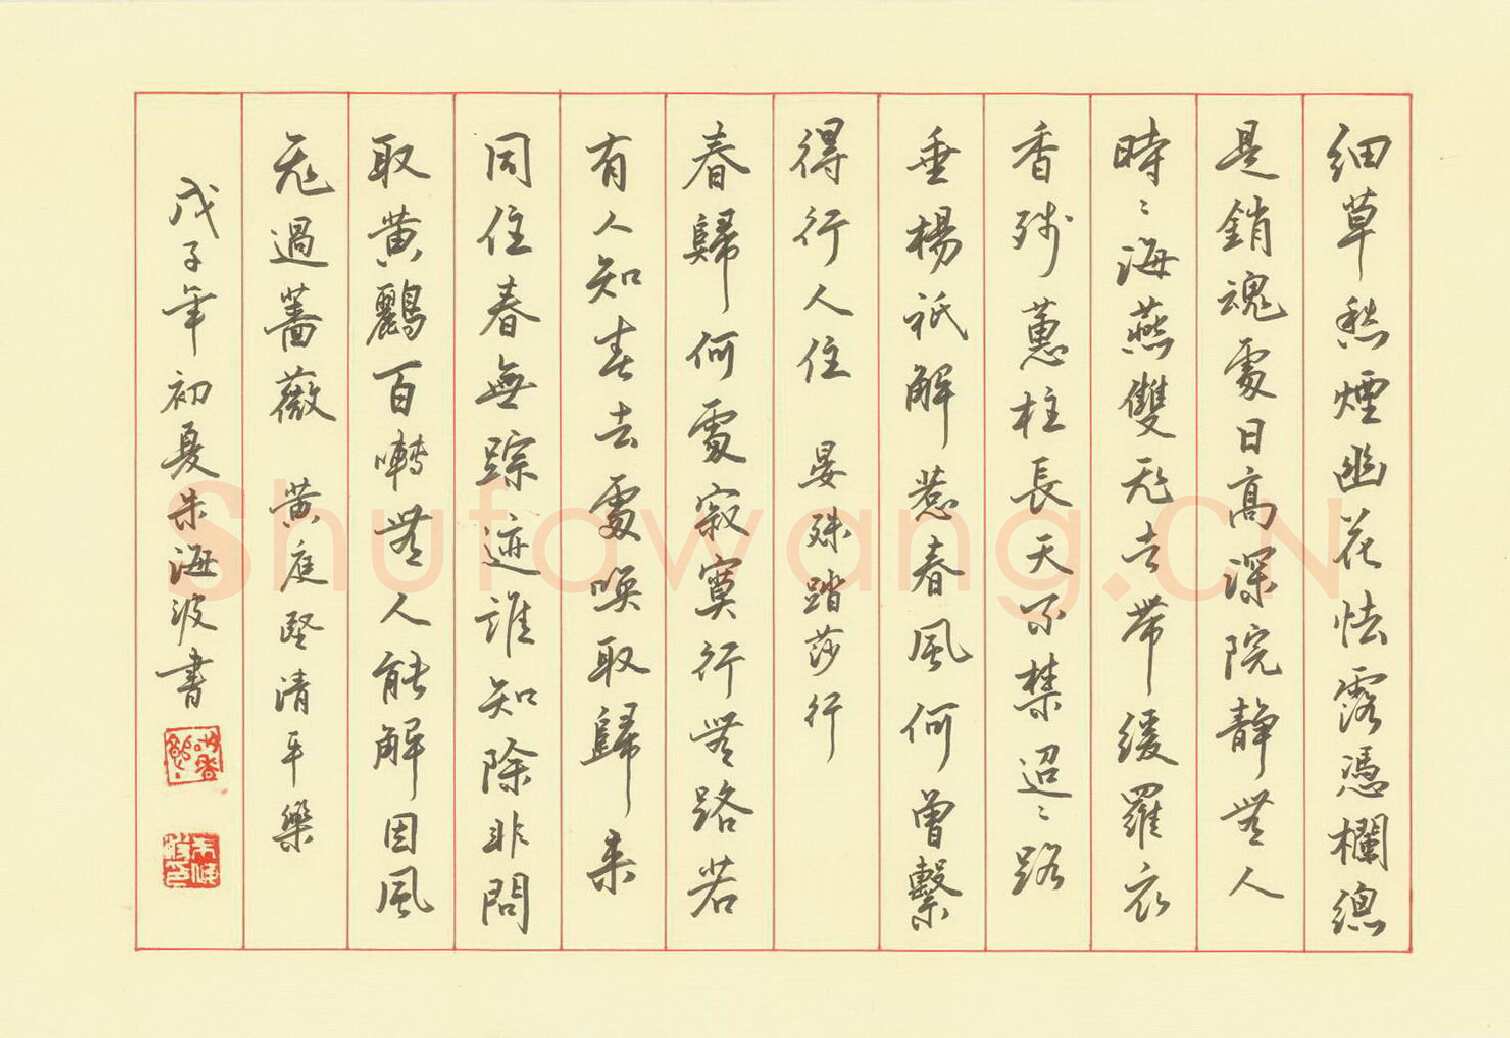 細草愁煙幽花怯露憑欄總
是銷魂處日高深院靜無人
時〻海燕雙飛去帶緩羅衣
香殘蕙柱長天不禁迢〻路
垂楊祇解惹春風何曾繫
得行人住 晏殊踏莎行
春歸何處寂寞行無路若
有人知春去處喚取歸來
同住春無踪迹誰知除非問
取黄鸝百囀無人能解因風
飛過薔薇 黄庭堅清平樂
戊子年初夏朱海波書
Shufawang.CN